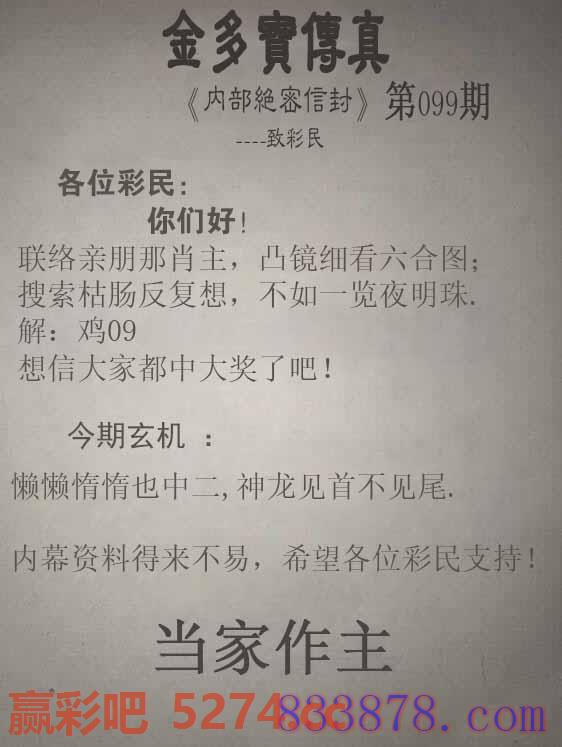 金多寶傳真
《内部絕密信封》第099期
----致彩民
各位彩民:
你们好!
联络亲朋那肖主，凸镜细看六合图;
搜索枯肠反复想，不如一览夜明珠.
解：鸡09
想信大家都中大奖了吧!
今期玄机 :
懒懒惰惰也中二,神龙见首不见尾.
内幕资料得来不易，希望各位彩民支持!
当家作主
赢彩吧 5274.cc 833878.com